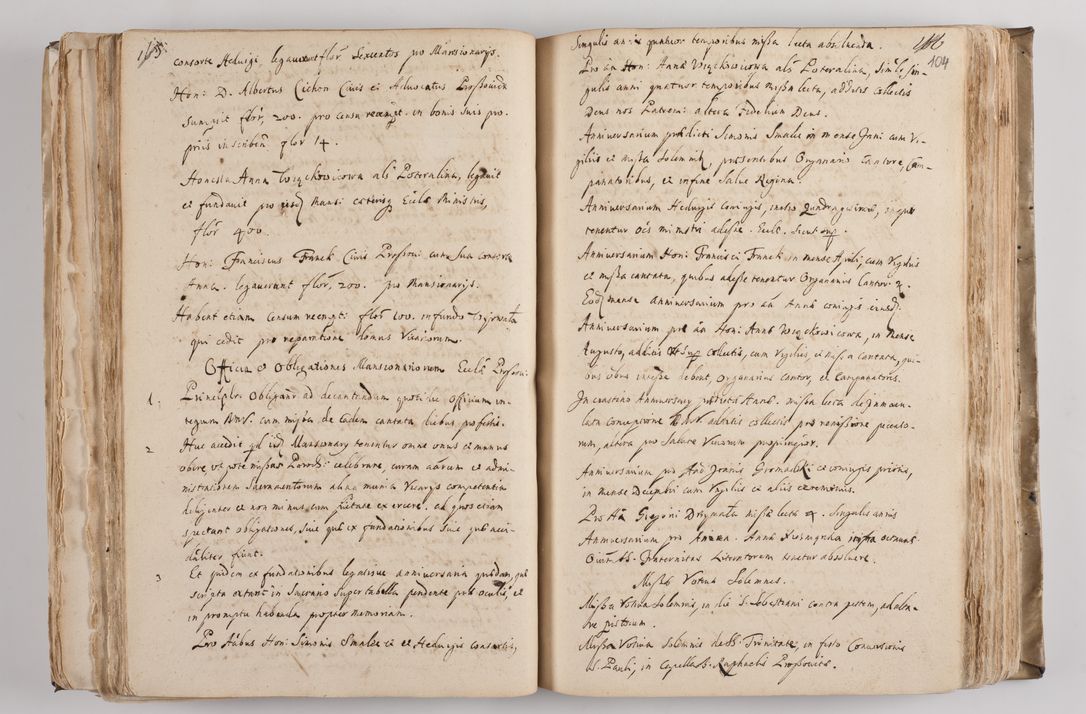 consorte Heduigi, legauerunt flor Sexcentos pro Mansionarijs.
Hon: D. Albertus Cichon Ciuis et Aduocatus Prossouien
Sumpsit flor, 200. pro censu reempt. in bonis suis pro-
prijs inscriben flor 14.
Honesta Anna Więckowicowa als Poteralina, legauit
et fundauit pro ijsdem Mansi: caeterisq Eccle Ministris,
flor 400.
Hon: Franciscus Franek Ciuis Prossoui: cum sua consorte
Anna. legauerunt flor, 200. pro Mansionarijs.
Habent etiam Censum reempt: flor 100. in fundo
qui cedit pro reparatione domus Vicariorum.
Officia et obligationes Mansionariorum Eccle Prossoui:
1. Principalr obligant ad decantandum quotidie Officium in-
tegrum BMV. cum missa de eadem cantata diebus profestis.
2 Huc accedit qd ijdem Mansionarij tenentur omne onus et munus
obire, ut pote missas Paroch: celebrare, curam aarum et admi-
nistrationem Sacramentorum aliaq munia Vicarijs competentia
diligenter et non minus cum exercere. ad quos etiam
spectant obligationes, siue qub ex fundationibus siue qub acci-
daliter fiunt.
3 Et quidem ex fundationibus legatisque anniuersaria quaedam, qub
scripta extant in Sacrario Super tabella pendente prae oculis, et
in promptu habenda propter memoriam.
Pro Aabus Hon: Simonis Smalec et Heduigis consortis,
104
Singulis annis quatuor temporibus missa lecta absoluenda.
Pro aa Hon: Anna Więckowicowa als Poteralina, Simil: sin-
gulis anni quatuor temporibus missa lecta, additis collectis
Deus nos Patrem: altera Fidelium Deus.
Anniuersarium praedicti Simonis Smalec in mense Juni cum Vi-
gilijs et missa Solemni, praesentibus Organario Cantore, Cam-
panatoribus, et in fine Salue Regina.
Anniuersarium Heduigis coniugis, medio Quadragesimae, in quo
tenentur oes ministri adesse Eccle. Sicut sup.
Anniuersarium Hon: Francisci Franek in mense Aprili, cum Vigilijs
et missa cantata, quibus adesse tenentur Organarius Cantor &.
Eodem mense anniuersarium pro aa Annae coniugis eiusdem:
Anniuersarium pro aa Hon: Annae Więckowicowa, in mense
Augusto, additis ut sup collectis, cum Vigilijs, et missa Cantata, qui-
bus oibus interesse debent, organarius cantor, et campanatoris.
In crastino Anniuersarij praedictae Annae. missa lecta de Immacu-
lata conceptione BMV. additis collectis pro remissione peccato-
rum, altera pro salute Viuorum
Anniuersarium pro Aab Joannis Gromalski et coniugis prioris,
in mense Decembri cum Vigilijs et alijs ceremonijs.
Pro Aa Gregorij Drzymała missa lecta &. Singulis annis
Anniuersarium pro Anima. Annae infra octauas
Oium SS. Fraternitas Literatorum tenetur absoluere.
Missae Votiuae Solemnes.
Missa Votiua Solemnis, in die S. Sebastiani contra pestem,
Missa Votiua Solemnis de SS. Trinitate, in festo Conuersionis
S. Pauli, in Capella S. Raphaelis Prossouice.